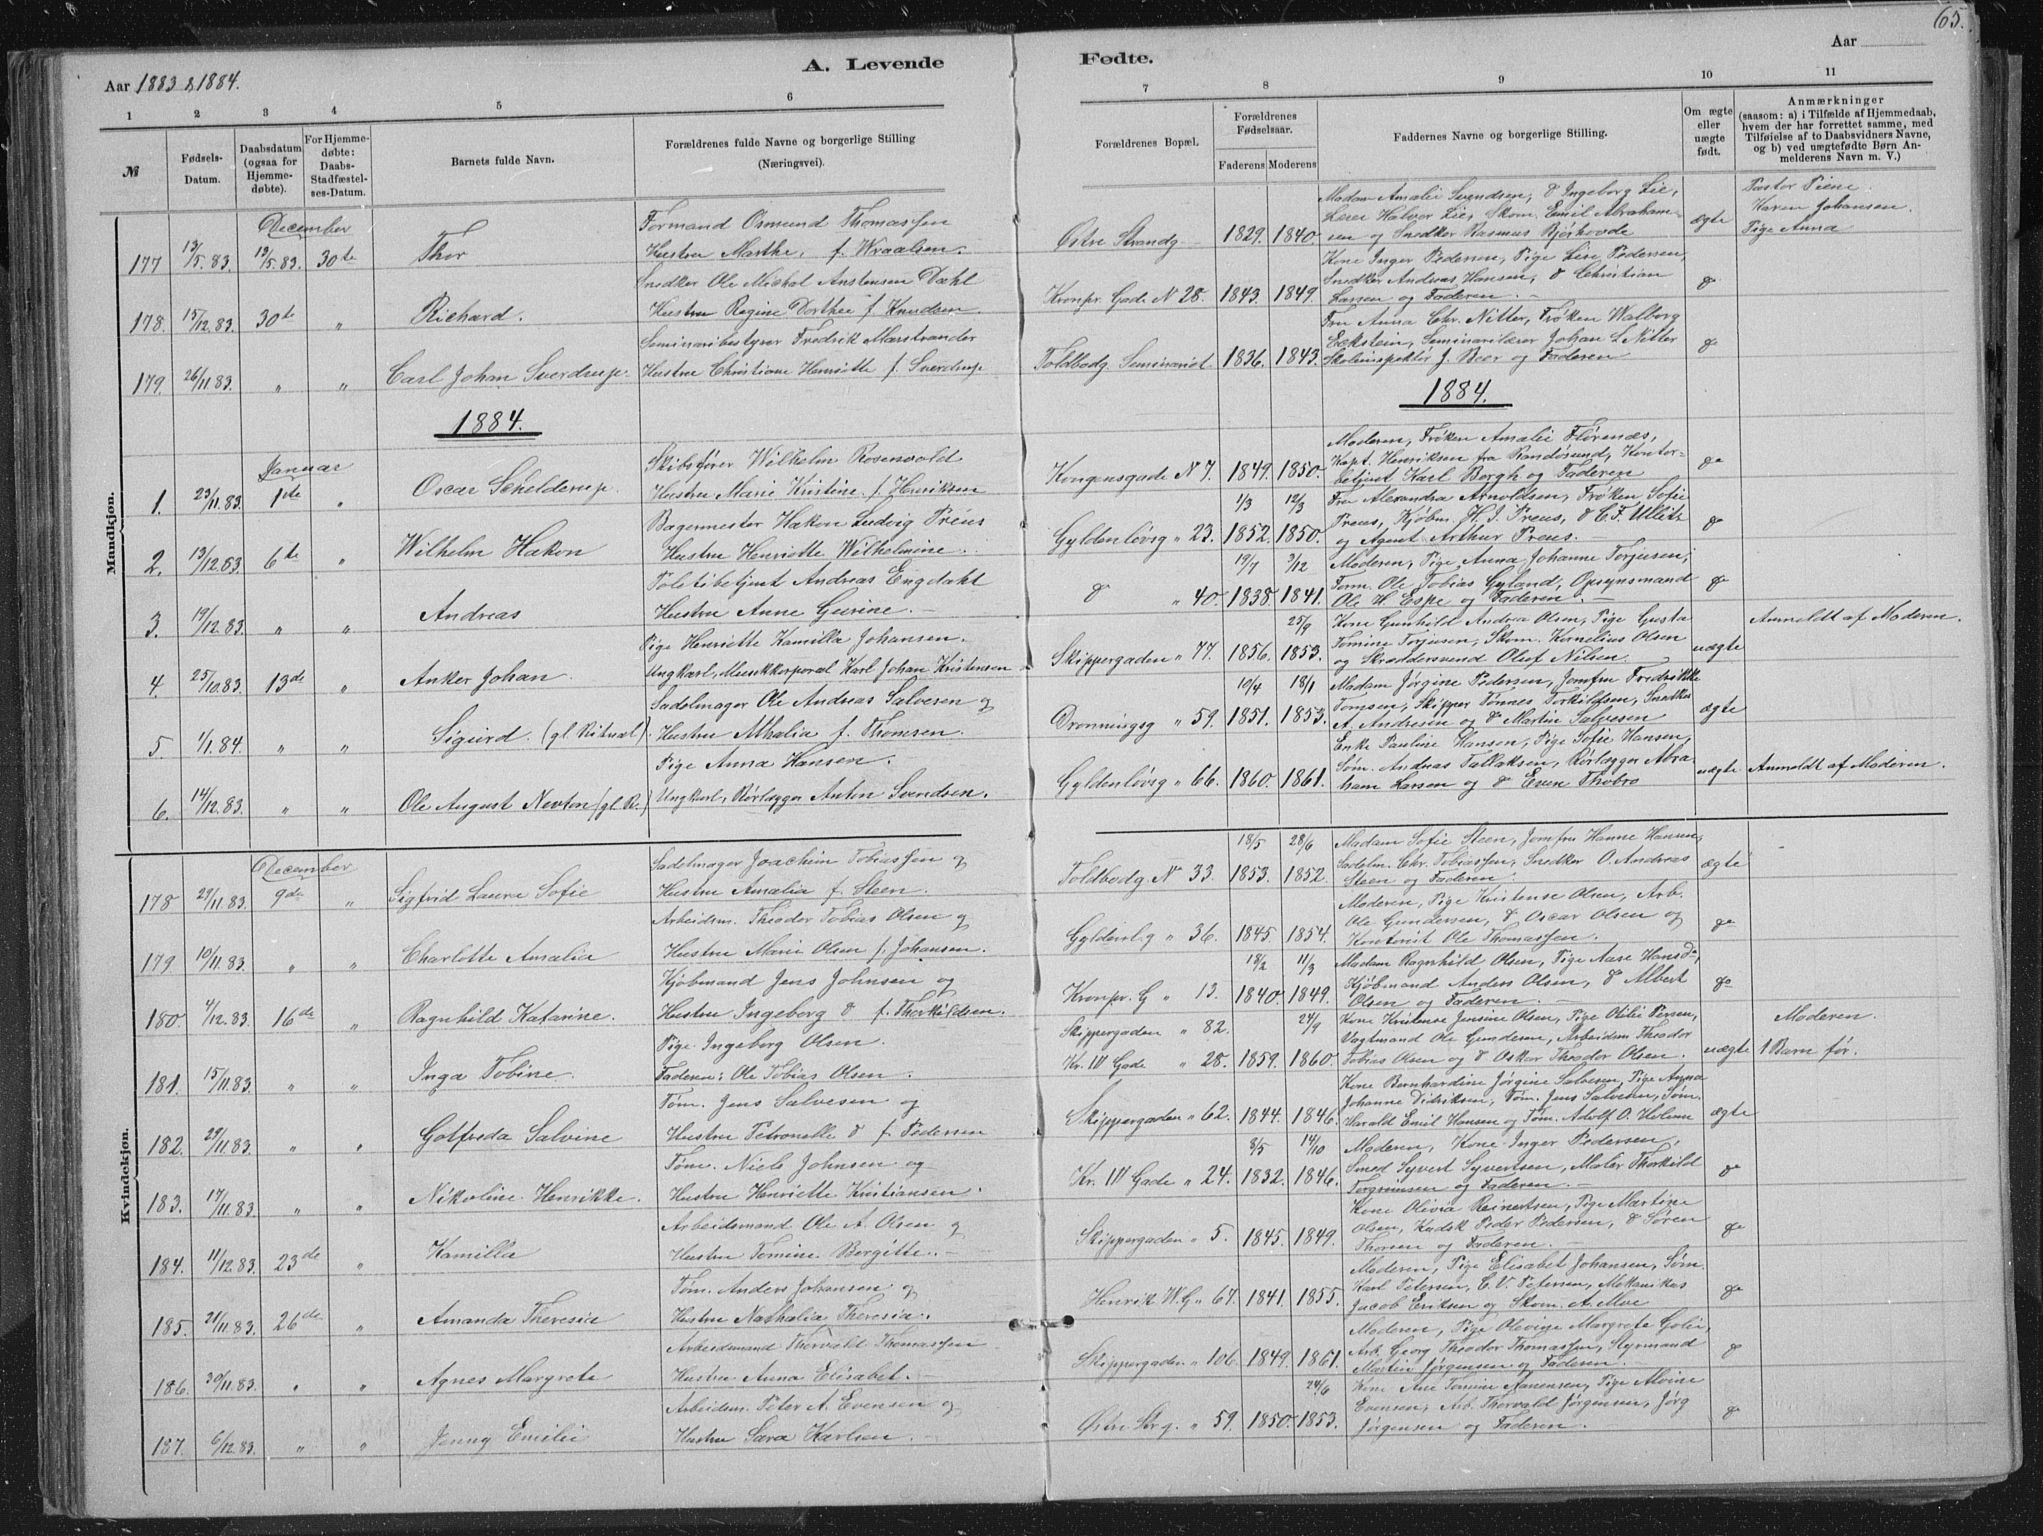 65.
Aar 1883 & 1884.
A. Levende
Fødte.
Aar
1 2 3 4 5 6 7 8 9 10 11
№
Fødsels-Datum.
Daabsdatum (ogsaa for Hjemmedøbte).
For Hjemmedøbte: Daabs-Stadfæstelses-Datum.
Barnets fulde Navn.
Forældrenes fulde Navne og borgerlige Stilling (Næringsvei).
Forældrenes Bopæl.
Forældrenes Fødselsaar.
Faderens Moderens
Faddernes Navne og borgerlige Stilling.
Om ægte eller uægte født.
Anmærkninger (saasom: a) i Tilfælde af Hjemmedaab, hvem der har forrettet samme, med Tilføielse af to Daabsvidners Navne, og b) ved uægtefødte Børn Anmelderens Navn m. V.)
Mandkjøn.
December
177 13/5.83. 13/5.83. 30te Thor
Formand Osmund Thomassen
Hustru Marthe, f. Wraalsen.
Østre Strandg 1829. 1840.
Madam Amalie Svendsen, do Ingeborg Lie,
Lærer Halvor Lie, Skom. Emil Abraham-
sen og Snedker Rasmus
ægte
Pastor Piene
Karen Johansen.
Pige Anna
178. 15/12.83. 30te " Richard.
Snedker Ole Michal Anstensen Dahl
Hustru Regine Dorthea f. Knudsen.
Kronpr. Gade N 28. 1843. 1849.
Kone Inger Pedersen, Pige Lise Pedersen,
Snedker Andreas Hansen, do Christian
Larsen og Faderen. —
do
179. 26/11.83. " " Carl Johan Sverdrup.
Seminariebestyrer Fredrik Marstrander
Hustru Christiane Henriette f. Sverdrup
Toldbodg. Seminariet. 1836. 1843.
Fru Anna Chr. Nitter, Frøken Walborg
Eckstein, Seminarilærer Johan L. Nitter
Skoleinspektør J. Beer og Faderen
do
1884.
1884.
Januar
1. 23/11.83. 1ste " Oscar Schelderup.
Skibsfører Wilhelm Rosenvold
Hustru Marie Kristine f. Henriksen
Kongensgade N 7. 1849. 1850.
Moderen, Frøken Amalie Flørenæs,
Kapt. Henriksen fra Randøsund, Kontor-
betjent Karl Bergh og Faderen
do
2. 13/12.83. 6te " Wilhelm Hakon
Bagermester Hakon Ludvig Preus
Hustru Henriette Wilhelmine.
Gyldenløvsg " 23. 1/3 1852. 12/3 1850.
Fru Alexandra Arnoldsen, Frøken Sofie
Preus, Kjøbm. H. J. Preus, do C. F. Ullitz
og Agent Arthur Preus. —
do
3. 19/12.83. " " Andreas
Politibetjent Andreas Engdahl
Hustru Anne Gurine. —
do " 40. 19/7 1838. 3/12 1841.
Moderen, Pige Anna Johanne Torjusen,
Tom. Ole Tobias Gyland, Opsynsmand
Ole H. Espe og Faderen. —
do
4. 25/10.83. 13de " Anker Johan.
Pige Henriette Kamilla Johansen.
Ungkarl, Musikkorporal Karl Johan Kristensen
Skippergaden " 77. 1856. 25/9 1853.
Kone Gunhild Andrea Olsen, Pige Gusta
Tomine Torjusen, Skom. Kornelius Olsen
og Skræddersvend Oluf Nilsen.
uægte
Anmeldt af Moderen.
5. 1/1.84. " " Sigurd. (gl. Ritual).
Sadelmager Ole Andreas Salvesen og
Hustru Athalia f. Thomsen.
Dronningsg " 59. 19/4 1851. 18/1 1853.
Madam Jørgine Pedersen, Jomfru Fredrikke
Tomsen, Skipper Tønnes Torkildsen, Snedker
A. Andresen og do Martin Salvesen
ægte
6. 14/12.83. " " Ole August Newton (gl. R.)
Pige Anna Hansen.
Ungkarl, Rørlægger Anton Svendsen.
Gyldenløvsg " 66. 1860. 1861.
Enke Pauline Hansen, Pige Sofie Hansen,
Søm. Andreas Tallaksen, Rørlægger Abra
ham Larsen og do Even Thobro
uægte
Anmeldt af Moderen.
Kvindekjøn.
December
178 29/11.83. 9de " Sigfrid Laura Sofie
Sadelmager Joachim Tobiassen og
Hustru Amalia f. Steen.
Toldbodg. N 33. 18/5 1853. 28/6 1852.
Madam Sofie Steen, Jomfru Hanne Hansen,
Sadelm. Chr. Tobiassen, Snedker O. Andreas
Steen og Faderen.
ægte
179 10/11.83. " " Charlotte Amalia
Arbeidsm. Theodor Tobias Olsen og
Hustru Marie Olsen f. Johansen.
Gyldenl.g " 36. 1845. 1854.
Moderen, Pige Kristense Olsen, Arb.
Ole Gundersen, do Oscar Olsen og
Kontorist Ole Thomassen.
do
180. 4/12.83. 16de " Ragnhild Katarine.
Kjøbmand Jens Johnsen og
Hustru Ingeborg do f. Thorkildsen.
Kronpr. G " 13. 18/2 1840. 11/3 1849.
Madam Ragnhild Olsen, Pige Aase Hansd.,
Kjøbmand Anders Olsen, do Albert
Olsen og Faderen. —
do
181. 15/11.83. " " Inga Tobine.
Pige Ingeborg Olsen.
Faderen: Ole Tobias Olsen.
Skippergaden " 82.
Kr. IV Gade " 28. 1859. 24/9 1860.
Kone Kristense Jensine Olsen, Pige Otilie Iversen,
Vogtmand Ole Gundersen, Arbeidsm Theodor
Tobias Olsen og do Oskar Theodor Olsen.
uægte
Moderen.
1 Barn før.
182. 29/11.83. " " Gotfreda Salvine
Tøm. Jens Salvesen og
Hustru Petronelle do f. Pedersen
Skippergaden " 62. 1844. 1846.
Kone Bernhardine Jørgine Salvesen, Pige Anna
Johanne Didriksen, Tøm. Jens Salvesen, Søm.
Harald Emil Hansen og Tøm. Adolf O. Helene
ægte
183. 17/11.83. " " Nikoline Henrikke.
Tøm. Niels Johnsen og
Hustru Henriette Kristiansen.
Kr. IV Gade " 24. 8/5 1832. 14/10 1846.
Moderen, Kone Inger Pedersen,
Smed Syvert Syvertsen, Maler Thorkild
Torgrimsen og Faderen. —
do
184. 11/12.83. 23de " Kamilla
Arbeidsmand Ole A. Olsen og
Hustru Tomine Bergitte. —
Skippergaden " 5. 1845. 1849.
Kone Olivia Reinertsen, Pige Martine
Olsen, Kudsk Peder Pedersen, do Søren
Thorsen og Faderen. —
do
185. 21/11.83. 26de " Amanda Theresia
Tøm. Anders Johansen og
Hustru Nathalia Theresia.
Henrik W.G " 67. 1841. 1855.
Moderen, Pige Elisabet Johansen, Søm.
Karl Petersen, C. V. Petersen, Mekanikus
Jacob Eriksen og Skom. A. Moe
do
186. 30/11.83. " " Agnes Margrete
Arbeidsmand Thorvald Thomassen
Hustru Anna Elisabet.
Skippergaden " 106. 1849. 1861.
Moderen, Pige Olevine Margrete Golie,
Arb. Georg Theodor Thomassen, Styrmand
Martin Jørgensen og Faderen.
do
187. 6/12.83. " " Jenny Emilie
Arbeidsm. Peter A. Evensen og
Hustru Sara Karlsen. —
Østre Str g. " 59. 1850. 24/6 1853.
Kone Ane Tomine Aanensen, Pige Alvine
Evensen, Arb. Thorvald Jørgensen, Jørg
Jørgensen og Faderen.
do